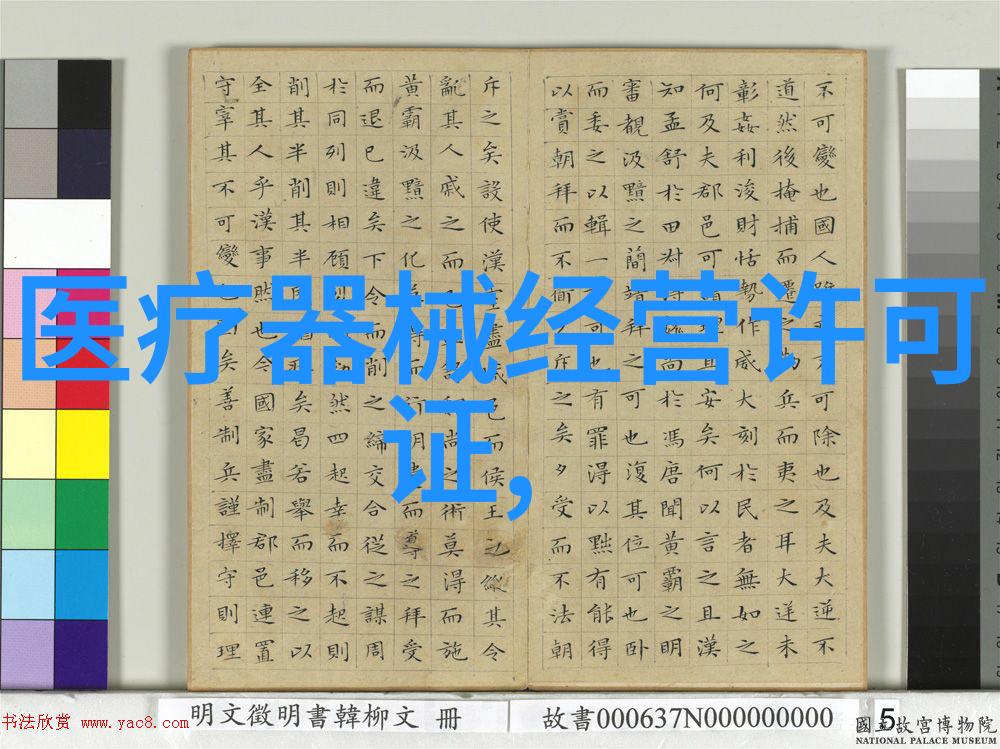 不可變也國人可除也及夫大逆不
道然後掩捕而遷之兵而夷之耳大逆未
彰姦利浚財怙勢作威大刻於民者無如之
何及夫郡邑可理且安矣何以言之且漢
知孟舒於田尚於馮唐聞黃霸之明
審覩汲黯之簡靖拜之可也復其位可也卧
而委之以輯一可也有罪得以黜有能得
以賞朝拜而不斥之矣夕受而不法朝
斥之矣設使漢盡城邑而侯王之縱其令
亂其人戚之而尚之術莫得而施
黃霸汲黯之化而行明而導之拜受
而退已違矣下令而削之締交合從之謀周
於同列則相顧然四起幸而不起則
削其半削其半矣曷若舉而移之以
全其人乎漢事然也今國家盡制郡邑連置
守宰其不可變矣善制兵謹擇守則理
医疗器械经营许可
证,
书法欣赏 www.yac8.com
明文徵明書韓柳文 冊
故書000637N000000000
5
國立故宮博物院
NATIONAL PALACE MUSEUM